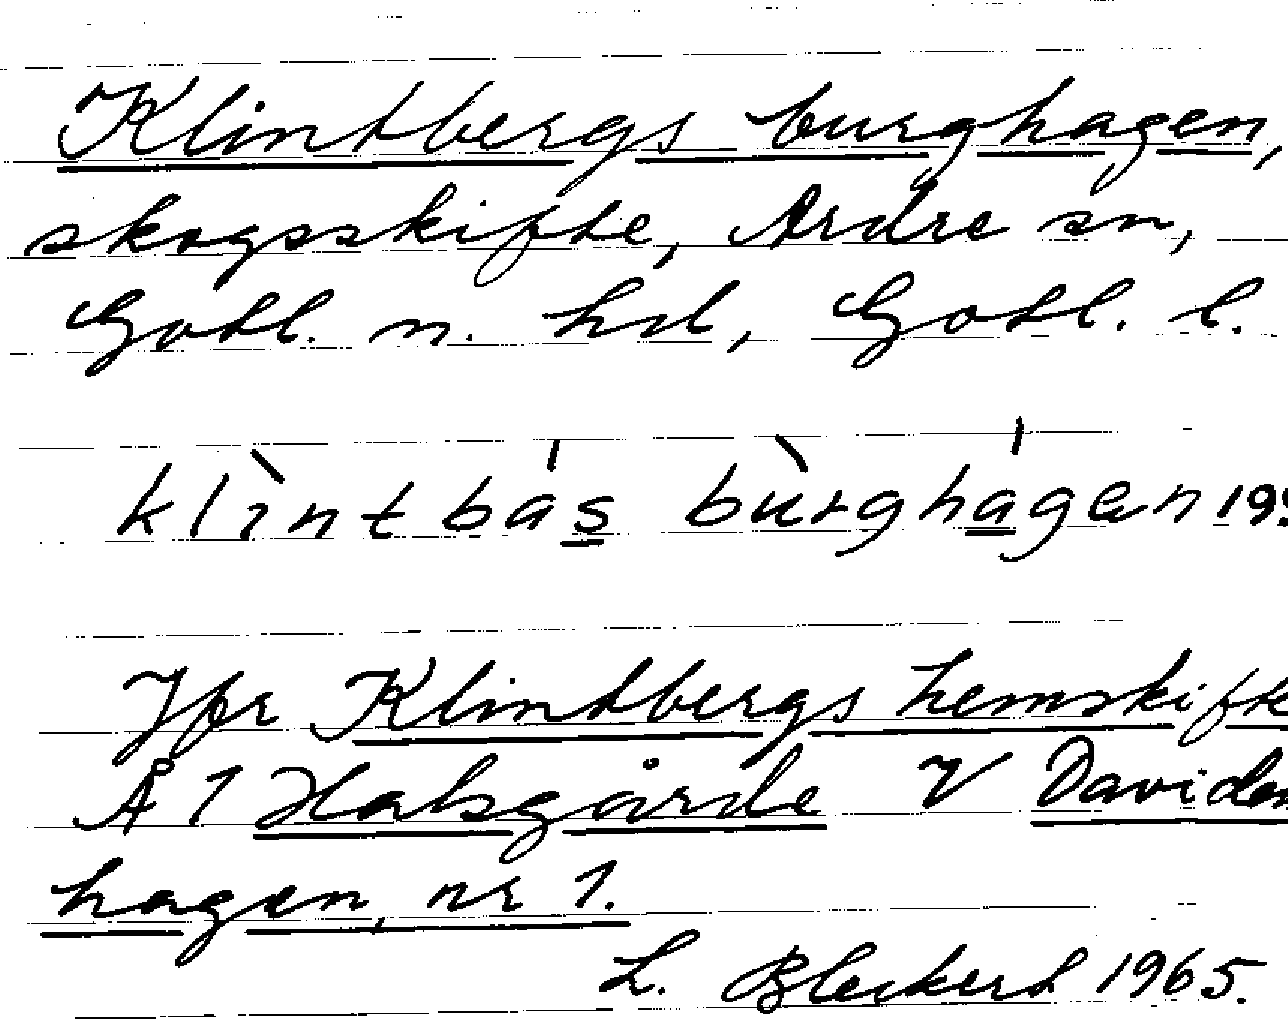 Klintbergs burghagen,
skogsskifte, Ardre sn,
Gotl. n. hd, Gotl. l.
klìntbás bùrghágen
Jfr Klintbergs hemskifte
Å 1 Halsgårde V Davidso
hagen, nr 1.
L. Bleckert 1965.